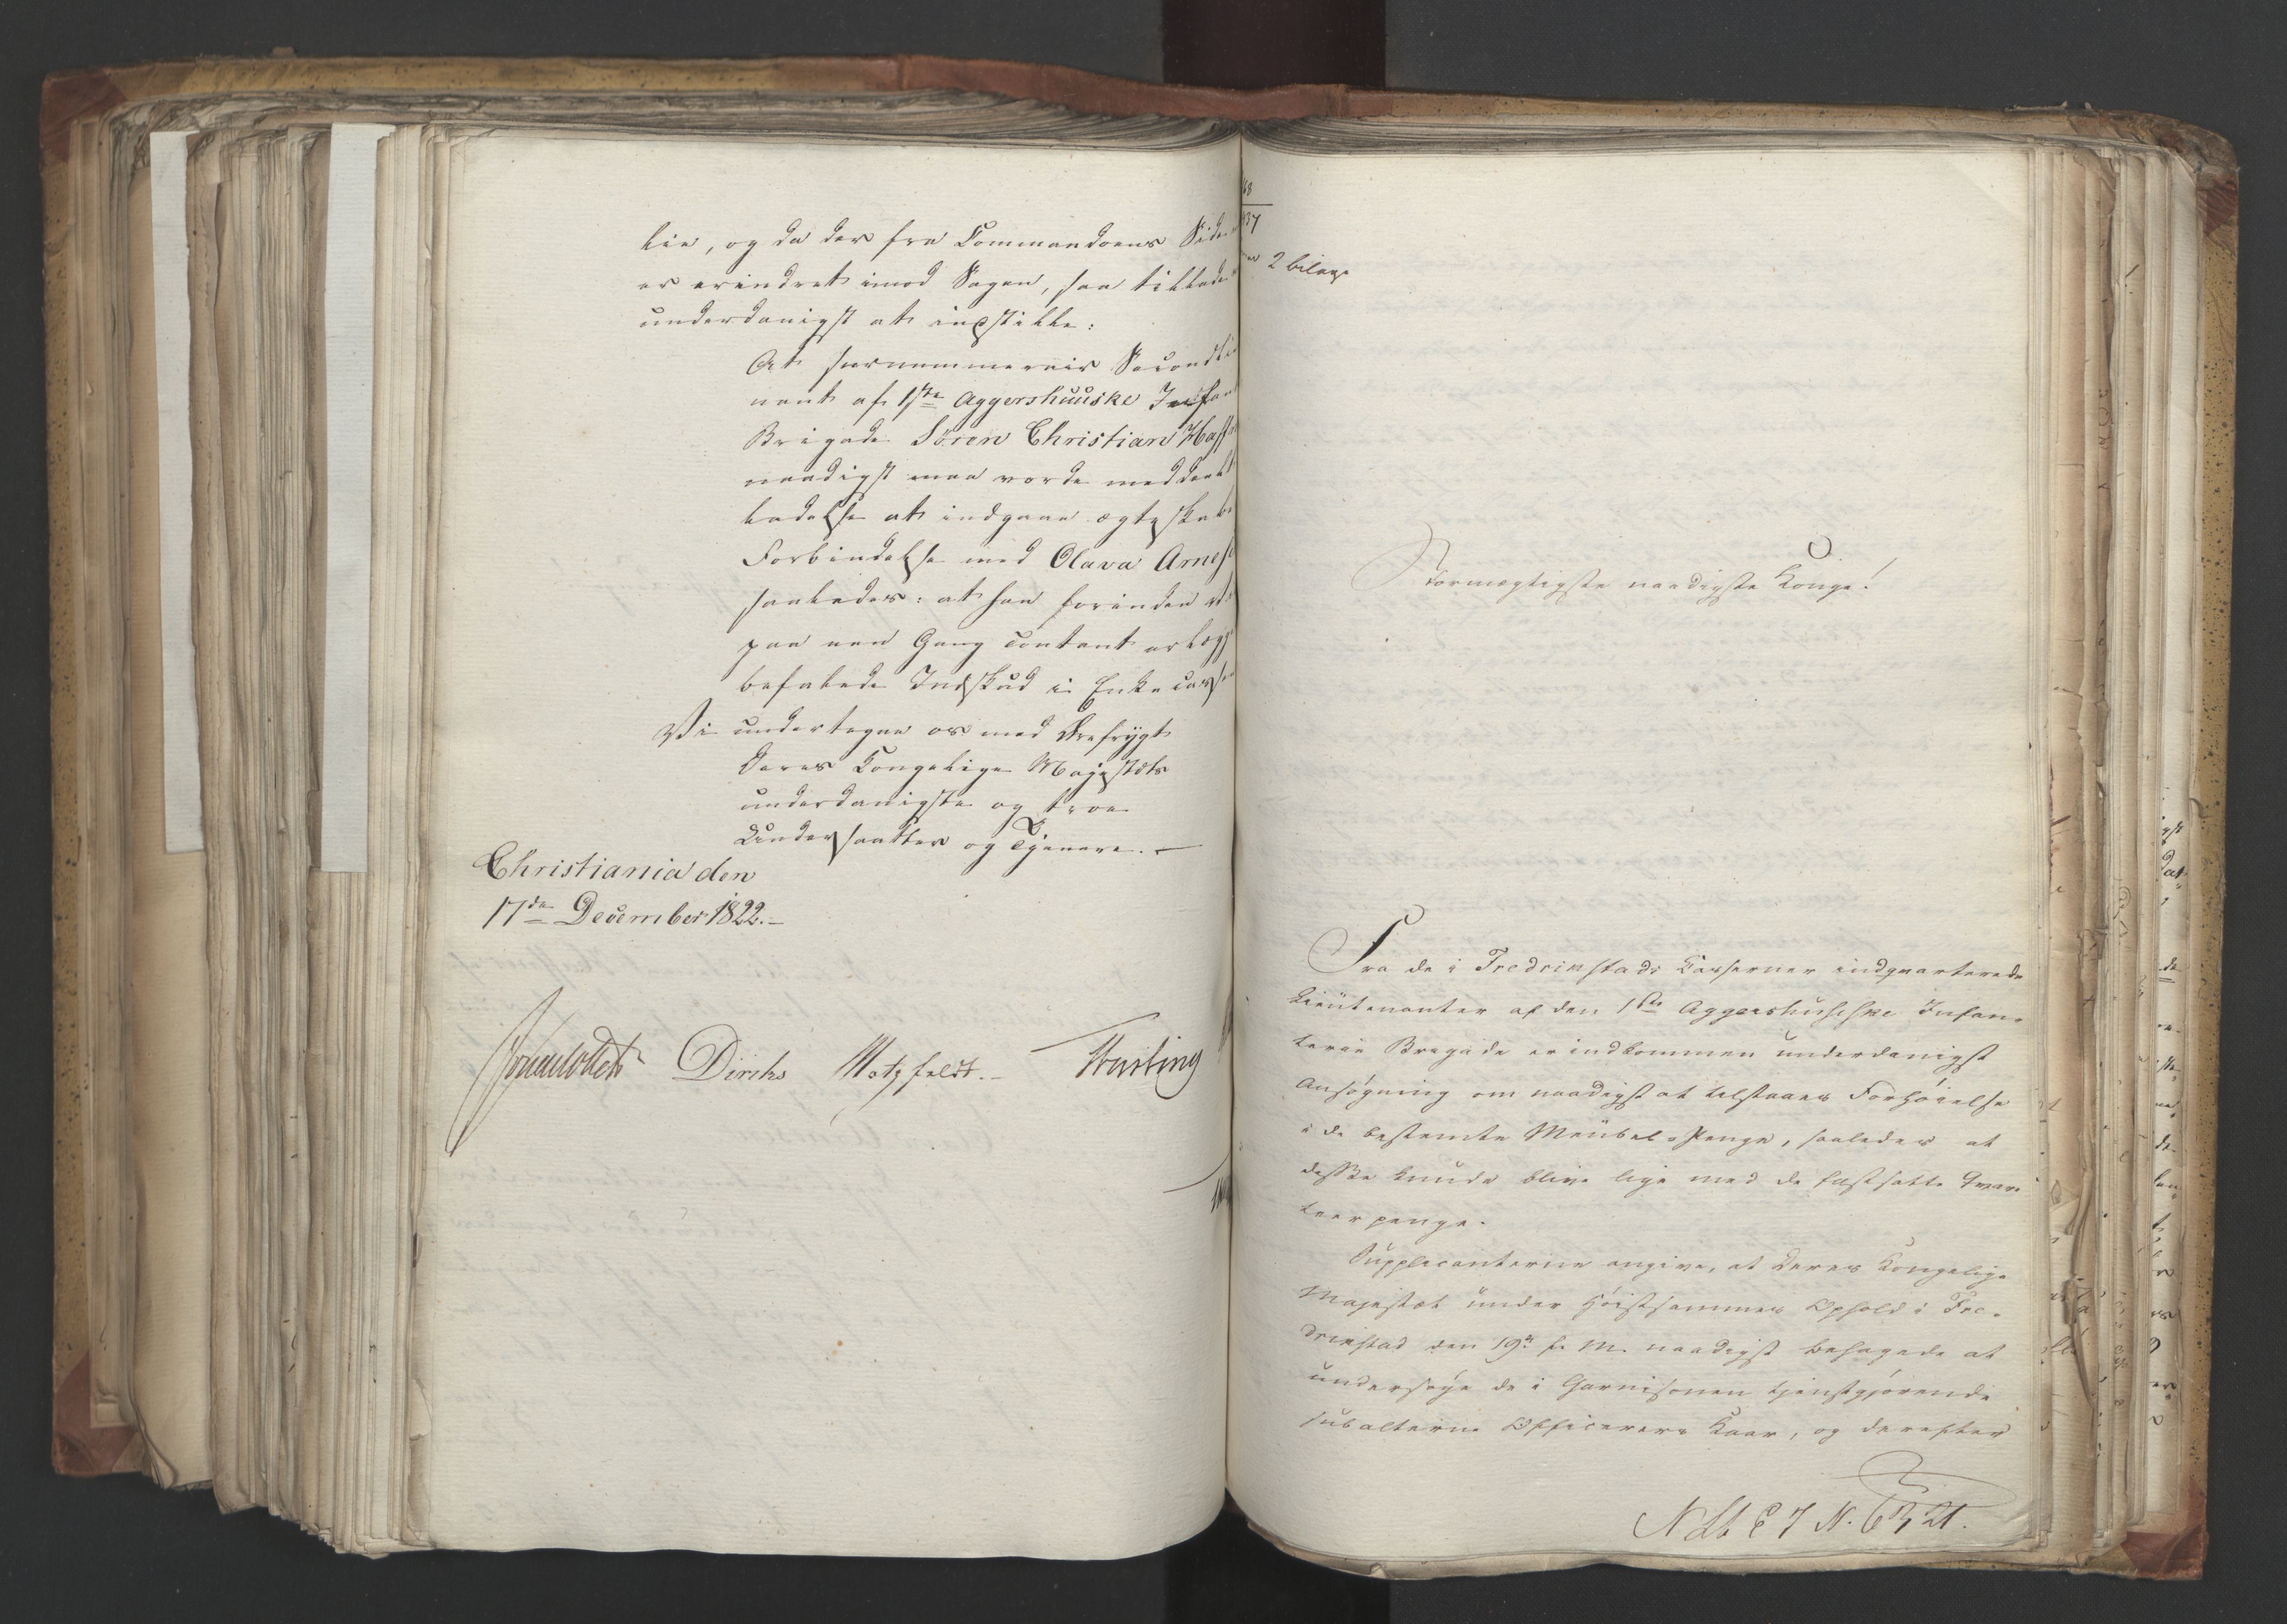 lie, og da der fra Commandoens Side
er erindret imod Sagen, saa tillade
underdanigst at indstille:
At surnummerair Secondli
nant af 1ste Aggershuuske Infan
Brigade Sören Christian Haff
naadigst maa vorde meddeelt
ladelse at indgaae ægteskabe
Forbindelse med Olava Arnes
saaledes: at han forinden
paa een Gang contant erlægg
befalede Indskud i Enkecassen
Vi undertegne os med Ærefrygt
Deres Kongelige Majestæts
underdanigste og troe
Undersaatter og Tjenere. –
Christiania den
17de December 1822. –
Diriks Motzfeldt. –
68
37
2 bilage
Stormægtigste naadigste Konge!
Fra de i Fredrikstads Casserner indqvarterede
Lieutenanter af den 1ste Aggershusiske Infan-
terie Bregade er indkommen underdanigst
Ansøgning om naadigst at tilstaaes Forhöielse
i de bestemte Meübel-Penge, saaledes at
disse kunde blive lige med de fastsatte Qvar-
teerpenge.
Supplicanterne angive, at Deres Kongelige
Majestæt under Høistsammes Ophold i Fre-
drikstad den 19de f. M. naadigst behagede at
undersøge de i Garnisonen tjenstgjørende
subalterne Officerers Kaar, og derefter